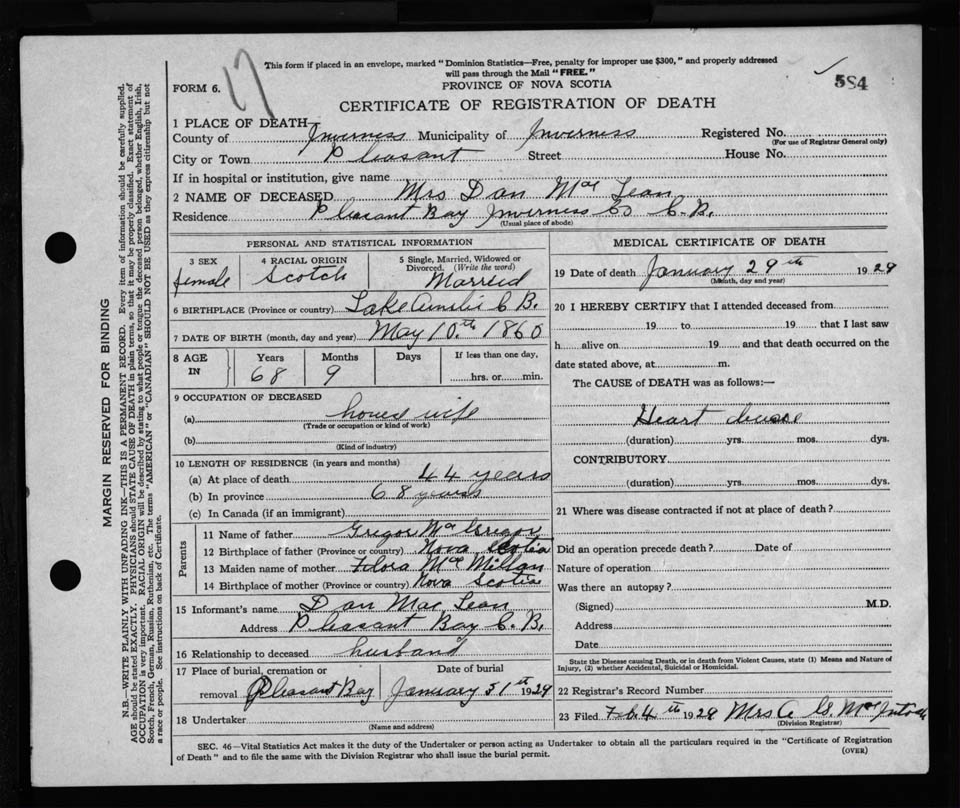 17
This form if placed in an envelope, marked "Dominion Statistics—Free, penalty for improper use $300," and properly addressed
will pass through the Mail "FREE."
✓ 584
FORM 6.
PROVINCE OF NOVA SCOTIA
CERTIFICATE OF REGISTRATION OF DEATH
1 PLACE OF DEATH
County of Inverness Municipality of Inverness Registered No.
(For use of Registrar General only)
City or Town Pleasant Street House No.
If in hospital or institution, give name
2 NAME OF DECEASED Mrs Dan Mac Lean
Residence Pleasant Bay Inverness Co C.B.
(Usual place of abode)
PERSONAL AND STATISTICAL INFORMATION
3 SEX female
4 RACIAL ORIGIN Scotch
5 Single, Married, Widowed or
Divorced. (Write the word)
Married
6 BIRTHPLACE (Province or country) Lake Ainslie C B.
7 DATE OF BIRTH (month, day and year) May 10.th 1860
8 AGE IN Years 68 Months 9 Days If less than one day,
hrs. or min.
9 OCCUPATION OF DECEASED
(a) house wife
(Trade or occupation or kind of work)
(b)
(Kind of industry)
10 LENGTH OF RESIDENCE (in years and months)
(a) At place of death 44 years
(b) In province 68 years
(c) In Canada (if an immigrant)
Parents
11 Name of father Gregor Mc Gregor
12 Birthplace of father (Province or country) Nova Scotia
13 Maiden name of mother Flora Mc Millan
14 Birthplace of mother (Province or country) Nova Scotia
15 Informant's name Dan Mac Lean
Address Pleasant Bay C.B.
16 Relationship to deceased husband
17 Place of burial, cremation or Date of burial
removal Pleasant Bay January 31th 1929
18 Undertaker
(Name and address)
MEDICAL CERTIFICATE OF DEATH
19 Date of death January 29th 1929
(Month, day and year)
20 I HEREBY CERTIFY that I attended deceased from
19 to 19 that I last saw
h alive on 19 and that death occurred on the
date stated above, at m.
The CAUSE of DEATH was as follows:—
Heart disease
(duration) yrs. mos. dys.
CONTRIBUTORY
(duration) yrs. mos. dys.
21 Where was disease contracted if not at place of death?
Did an operation precede death? Date of
Nature of operation
Was there an autopsy?
(Signed) M.D.
Address
Date
State the Disease causing Death, or in death from Violent Causes, state (1) Means and Nature of
Injury, (2) whether Accidental, Suicidal or Homicidal.
22 Registrar's Record Number
23 Filed Feb 4th 1929 Mrs A G. McIntosh
(Division Registrar)
SEC. 46—Vital Statistics Act makes it the duty of the Undertaker or person acting as Undertaker to obtain all the particulars required in the "Certificate of Registration
of Death" and to file the same with the Division Registrar who shall issue the burial permit.
(OVER)
MARGIN RESERVED FOR BINDING
N.B.—WRITE PLAINLY WITH UNFADING INK—THIS IS A PERMANENT RECORD. Every item of information should be carefully supplied.
AGE should be stated EXACTLY. PHYSICIANS should STATE CAUSE OF DEATH in plain terms, so that it may be properly classified. Exact statement of
OCCUPATION is very important. RACIAL ORIGIN will be described by stating to what people or tongue the deceased person belonged, whether English, Irish,
Scotch, French, German, Russian, Ruthenian, etc. The terms "AMERICAN" or "CANADIAN" SHOULD NOT BE USED as they express citizenship but not
a race or people. See instructions on back of Certificate.